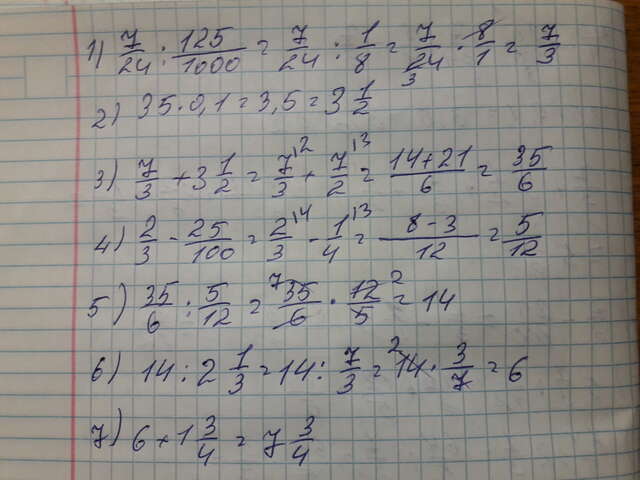 1) 7/24 : 125/1000 = 7/24 : 1/8 = 7/24 3 · 8/1 = 7/3
2) 35 · 0,1 = 3,5 = 3 1/2
3) 7/3 + 3 1/2 = 7/3 \2 + 7/2 \3 = 14+21/6 = 35/6
4) 2/3 - 25/100 = 2/3 \4 - 1/4 \3 = 8-3/12 = 5/12
5) 35/6 : 5/12 = 7 35/6 · 12/5 2 = 14
6) 14 : 2 1/3 = 14 : 7/3 = 2 14 · 3/7 = 6
7) 6 + 1 3/4 = 7 3/4